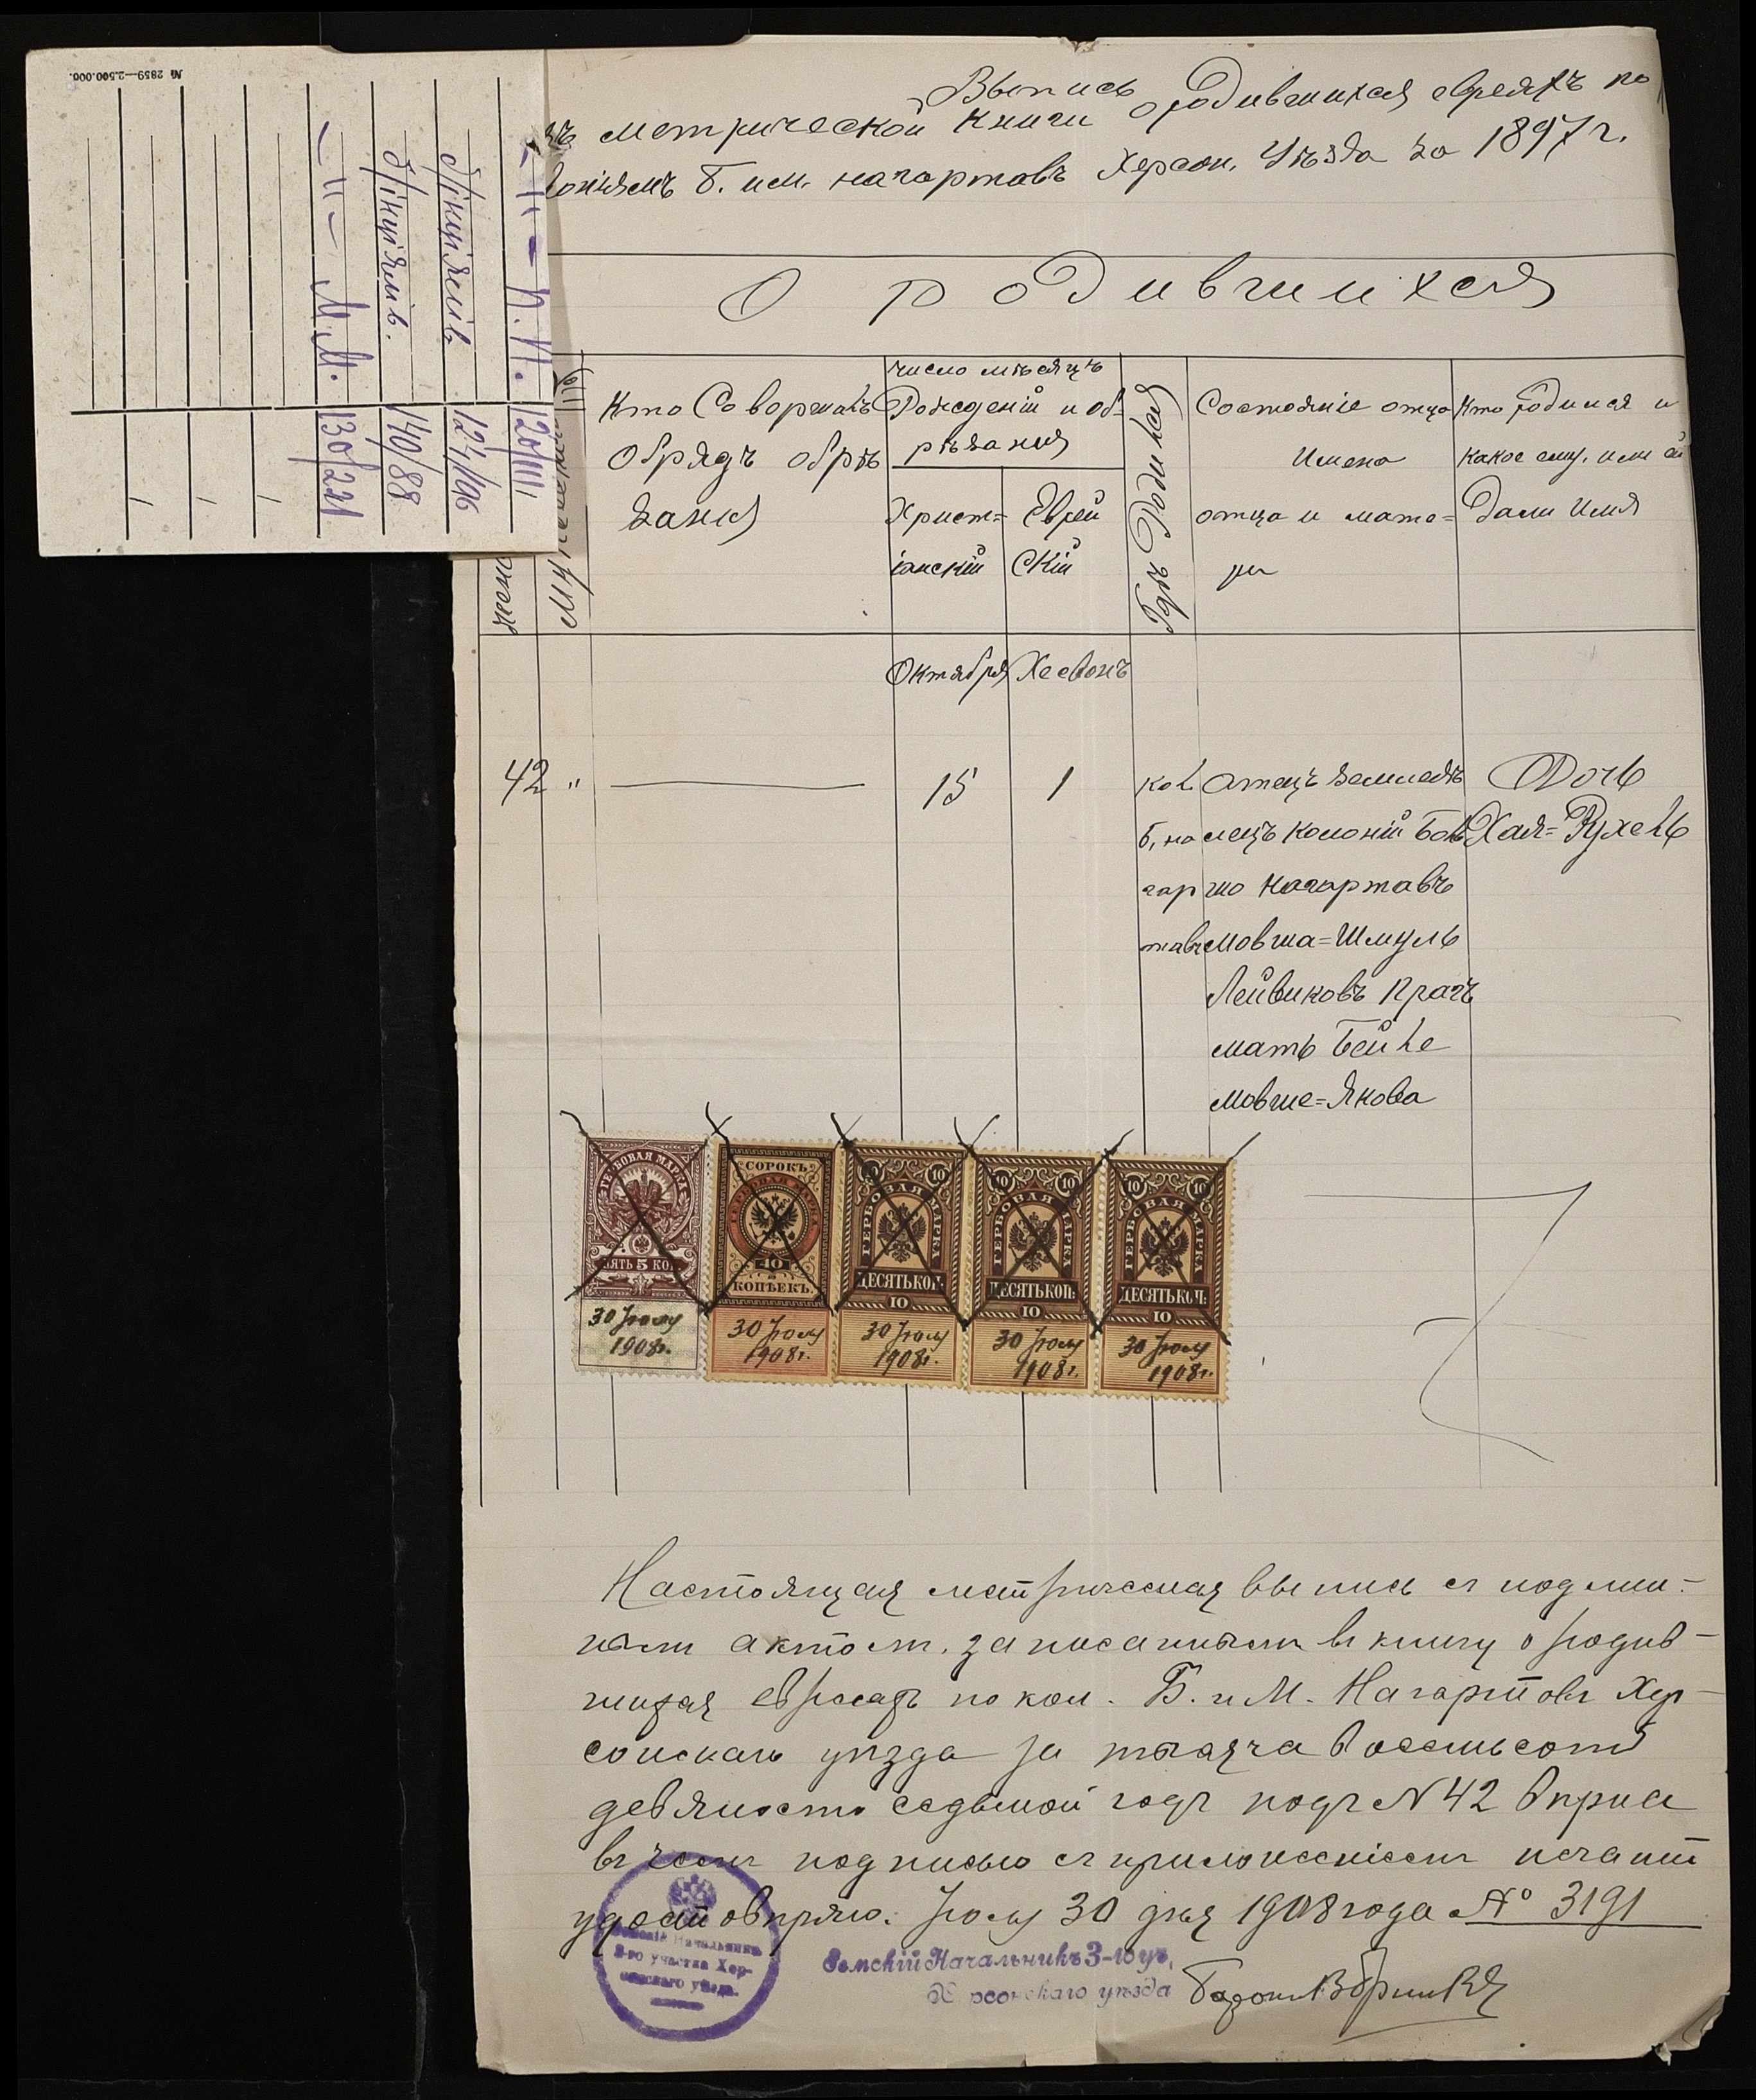 № 2859—2.500.000.
— 11 — П. П. 120/111,
б/інціялів 124/196
б/інціялів. 140/88
— 11 — М. М. 130/221
Выпись
изъ метрической книги о родившихся евреяхъ по
колоніямъ Б. и м. Нагартавъ Херсон. Уѣзда за 1897 г.
О родившихся
Женск
Мужескаго
Кто Соворшалъ
Обрядъ обрѣ
Занія
число мѣсяцъ
Рожденій и об-
рѣзанія
Христ=
іанскій
Еврей
Скій
Гдѣ Родился
Состояніе отца
Имена
отца и мате=
ри
Кто родился и
какое ему, или ей
дали Имя
Октября Хесвонъ
42 " — 15 1
кол
Б, на
гар
тавъ
Отецъ Земледѣ
лецъ Колоній Боль
шо Нагартавъ
Мовша=Шмуль
Лейвиковъ Прагъ
мать Бейле
Мовше=Якова
Дочь
Хая=Рухель
ГЕРБОВАЯ МАРКА
ПЯТЬ 5 КОП
30 Іюля
1908г.
СОРОКЪ
ГЕРБОВАЯ МАРКА
40
КОПѢЕКЪ
30 Іюля
1908г.
10 10
ГЕРБОВАЯ МАРКА
ДЕСЯТЬ КОП:
10
30 Іюля
1908г.
10 10
ГЕРБОВАЯ МАРКА
ДЕСЯТЬ КОП:
10
30 Іюля
1908г.
10 10
ГЕРБОВАЯ МАРКА
ДЕСЯТЬ КОП:
10
30 Іюля
1908г.
Настоящая метрическая выпись съ подлин-
нымъ актомъ, записаннымъ въ книгу о родив-
шихся евреяхъ по кол. Б. и М. Нагартовъ Хер-
сонскаго уѣзда за тысяча восемьсотъ
девяносто седьмой годъ подъ N 42 вѣрна
въ чемъ подписью съ приложеніемъ печати
удостовѣряю. Іюля 30 дня 1908 года № 3191
Земскій Начальникъ
3-го участка Хер-
сонскаго уѣзда.
Земскій Начальникъ 3-го уч.
Херсонскаго уѣзда
Баронъ